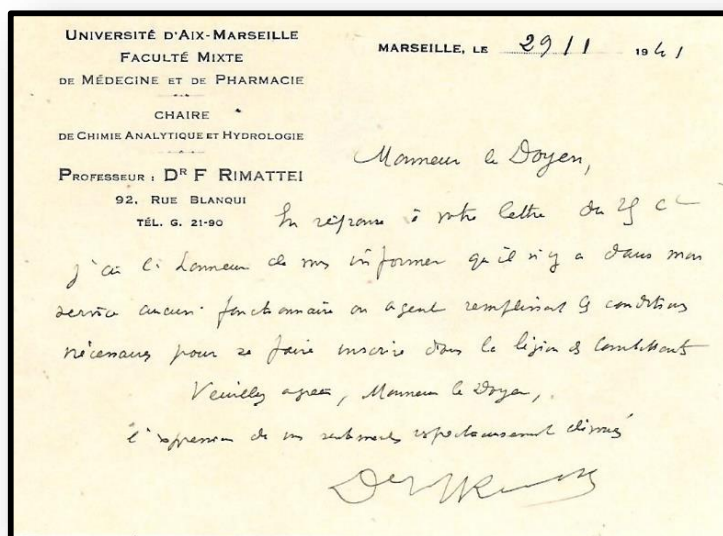 UNIVERSITÉ D'AIX-MARSEILLE
FACULTÉ MIXTE
DE MÉDECINE ET DE PHARMACIE
CHAIRE
DE CHIMIE ANALYTIQUE ET HYDROLOGIE
PROFESSEUR : DR F RIMATTEI
92, RUE BLANQUI
TÉL. G. 21-90
MARSEILLE, LE 29/1 1941
Monsieur le Doyen,
En réponse à votre lettre du 25 ct
j'ai l'honneur de vous informer qu'il n'y a dans mon
service aucun fonctionnaire ou agent remplissant les conditions
nécessaires pour se faire inscrire dans la légion des Combattants
Veuillez agréer, Monsieur le Doyen,
l'expression de mes sentiments respectueusement dévoués